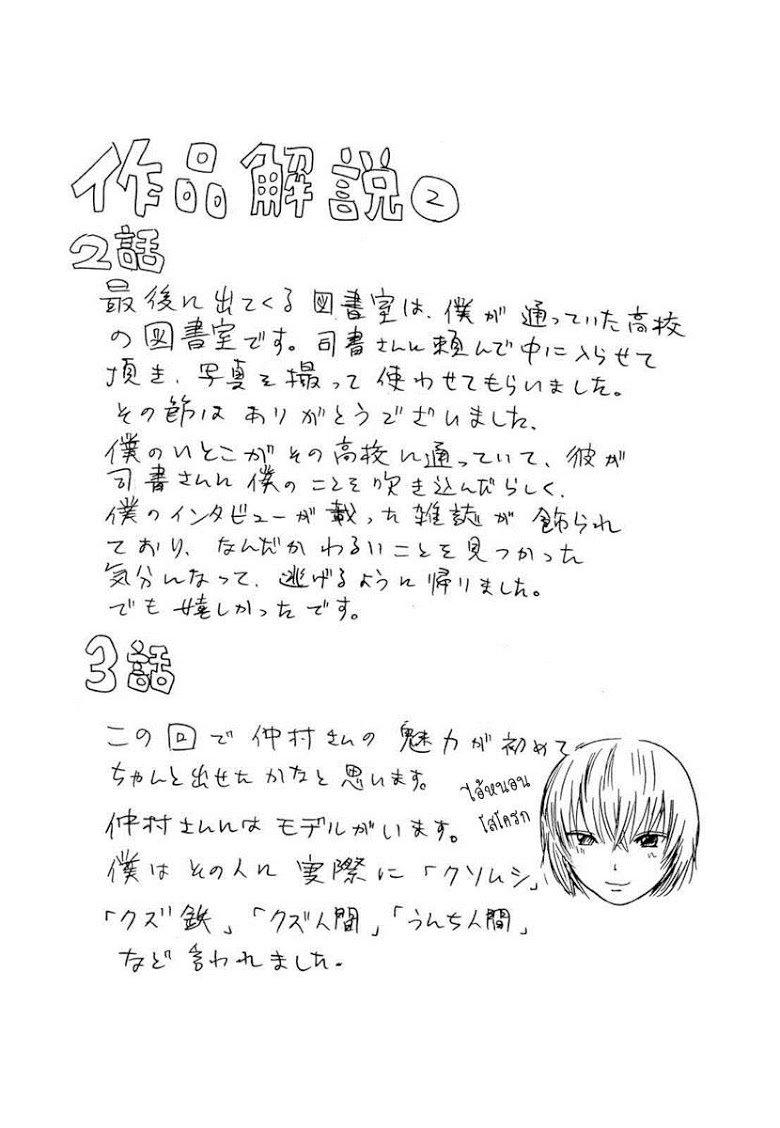 作品解説②
2話
最後に出てくる図書室は、僕が通っていた高校
の図書室です。司書さんに頼んで中に入らせて
頂き、写真を撮って使わせてもらいました。
その節はありがとうございました、
僕のいとこがその高校に通っていて、彼が
司書さんに僕のことを吹き込んだらしく、
僕のインタビューが載った雑誌が飾られ
ており、なんだかわるいことを見つかった
気分になって、逃げるように帰りました。
でも嬉しかったです。
3話
この回で仲村さんの魅力が初めて
ちゃんと出せたかなと思います。
ไอ้หนอน
โสโครก
仲村さんにはモデルがいます。
僕はその人に実際に「クソムシ」
「クズ鉄」、「クズ人間」、「うんち人間」
など言われました。